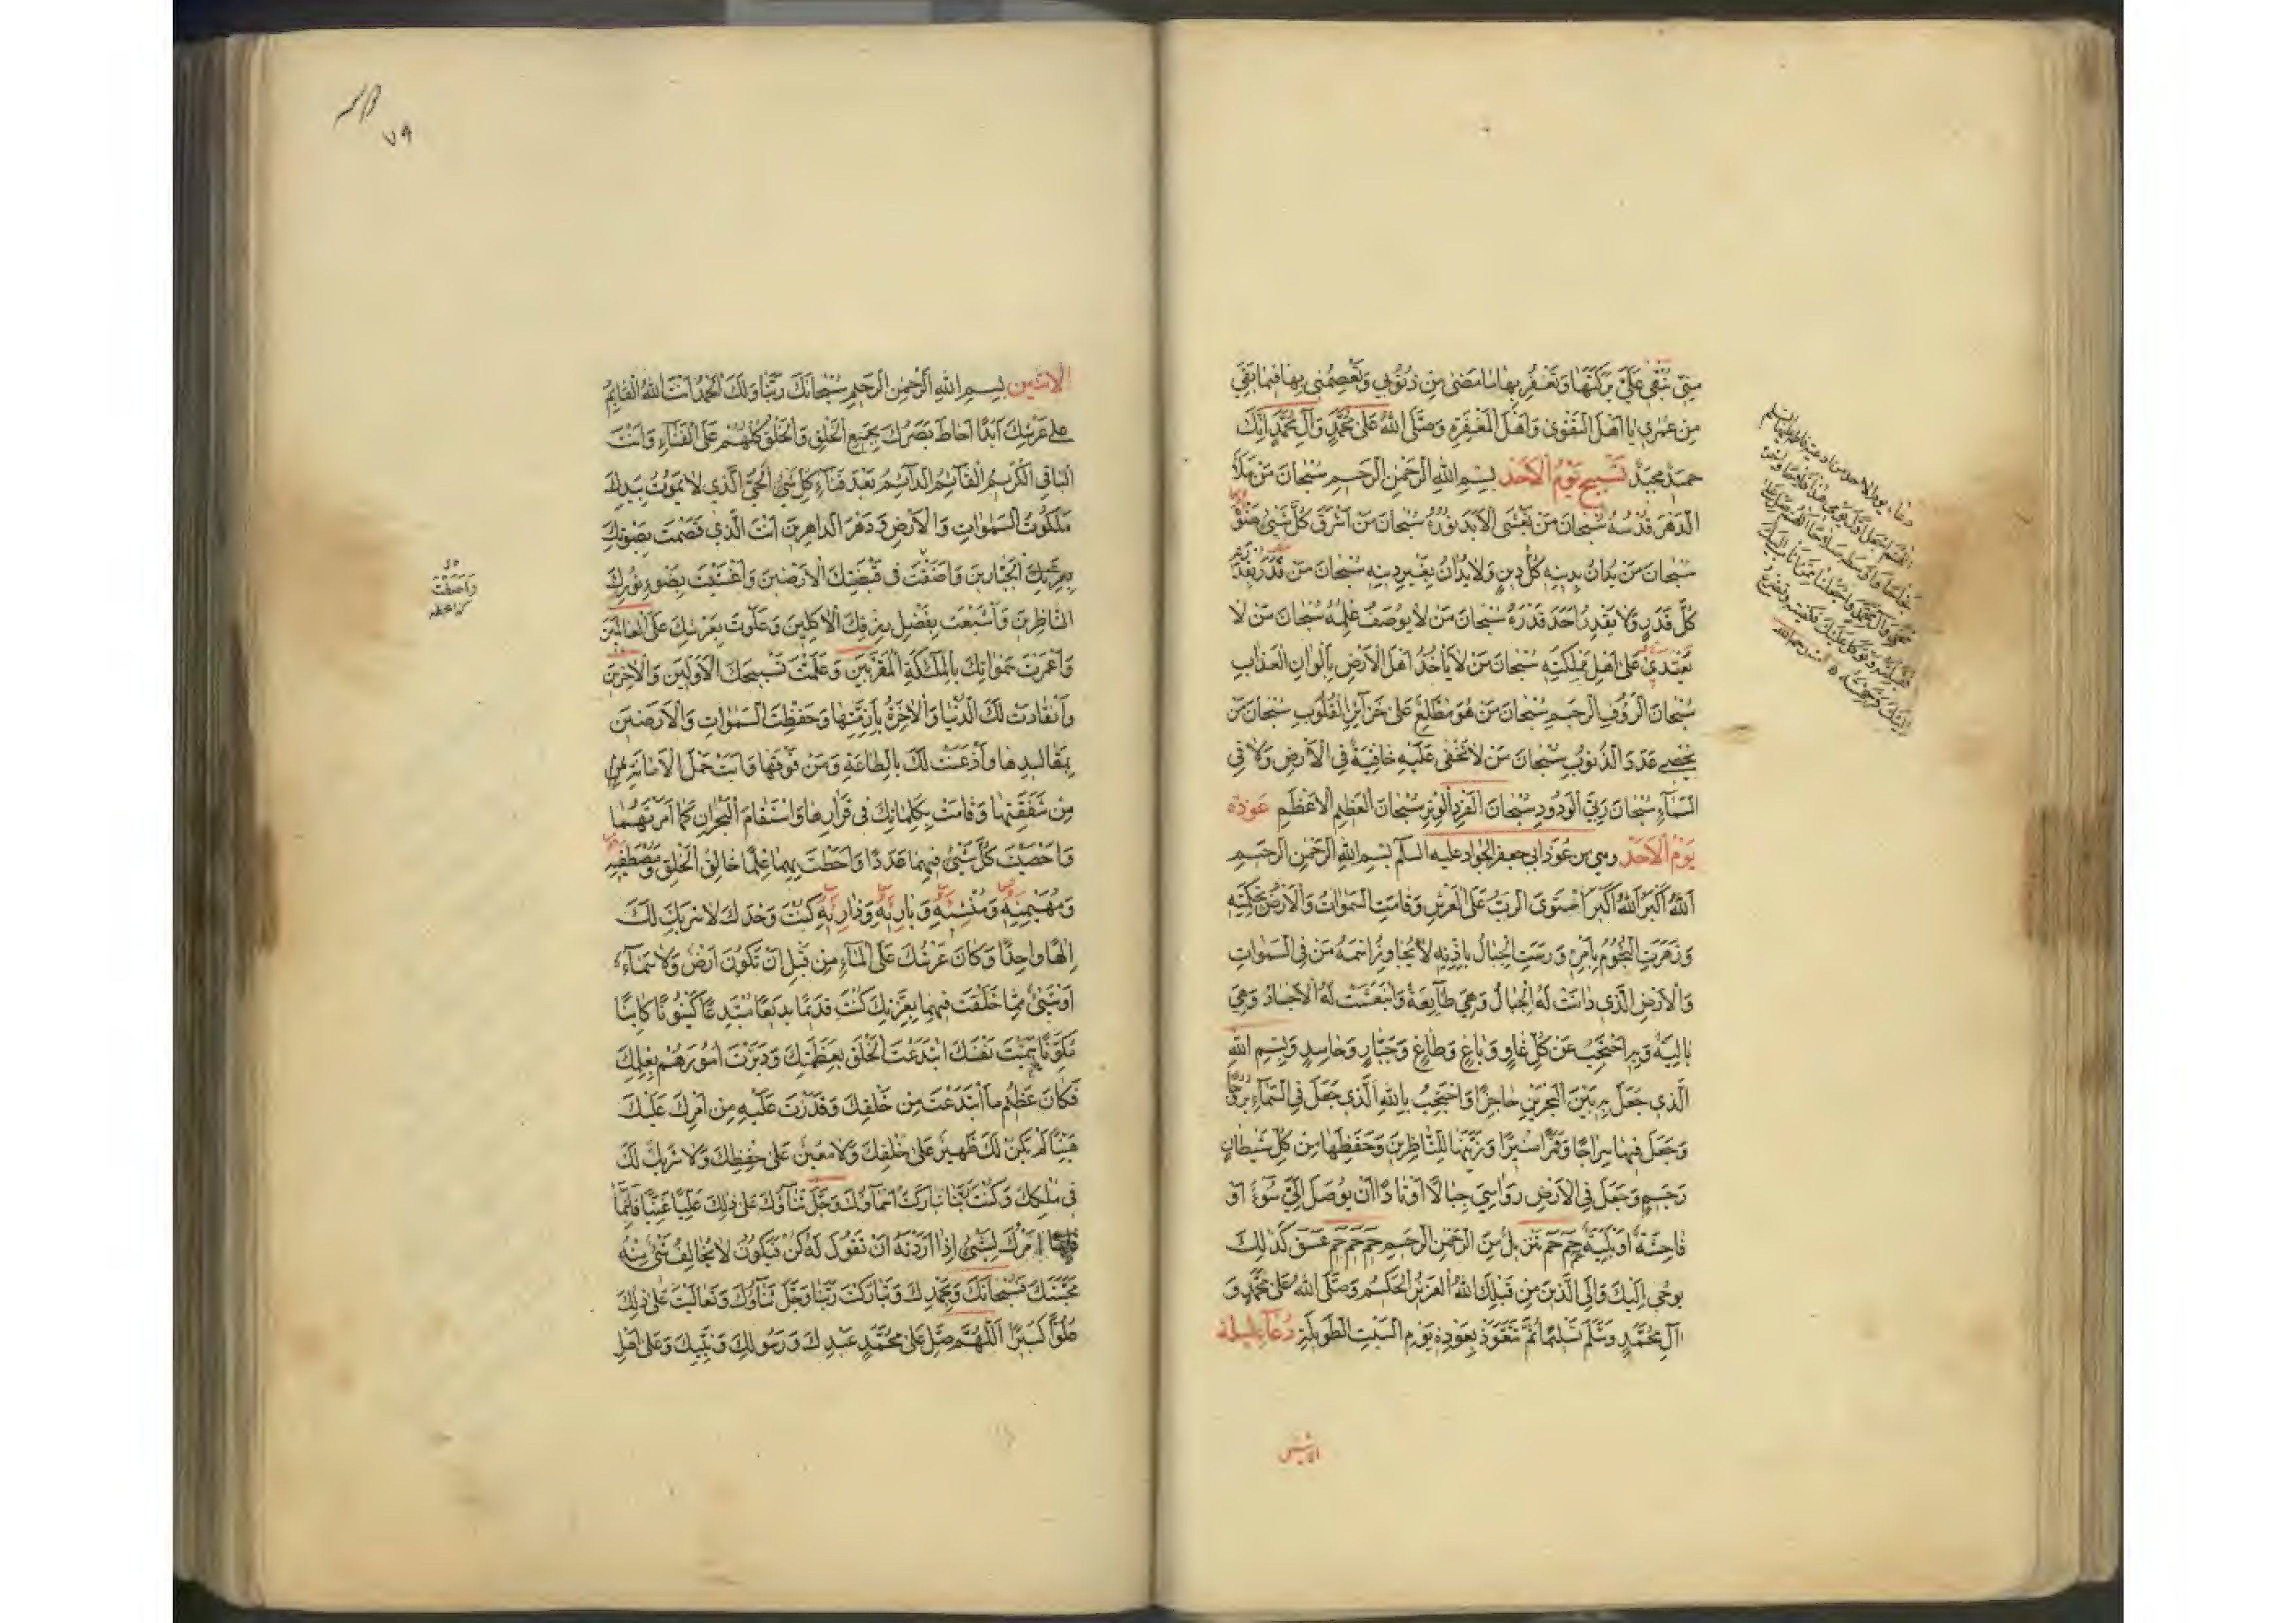 مِنّي تُبقي عَلَيَّ بَرَكَتَها وَتَغفِرُ بِها ما مَضى مِن ذُنُوبي وَتَعصِمُني بِها فيما بَقِيَ
مِن عُمُري يا اَهلَ التَّقوى وَاَهلَ المَغفِرَةِ وَصَلَّى اللهُ عَلى مُحَمَّدٍ وَآلِ مُحَمَّدٍ اِنَّكَ
حَميدٌ مَجيدٌ تَسبيحُ يَومِ الاَحَدِ بِسمِ اللهِ الرَّحمنِ الرَّحيمِ سُبحانَ مَن مَلَأَ
الدَّهرَ قُدسُهُ سُبحانَ مَن يَغشَى الاَبَدَ نُورُهُ سُبحانَ مَن اَشرَقَ كُلَّ شَيءٍ ضَوؤُهُ
سُبحانَ مَن يُدانُ بِدينِهِ كُلُّ دينٍ وَلا يُدانُ بِغَيرِ دينِهِ سُبحانَ مَن قَدَرَ بِقُدرَتِهِ
كُلَّ قَدَرٍ وَلا يَقدِرُ اَحَدٌ قَدرَهُ سُبحانَ مَن لا يُوصَفُ عِلمُهُ سُبحانَ مَن لا
يَعتَدي عَلى اَهلِ مَملِكَتِهِ سُبحانَ مَن لا يَأخُذُ اَهلَ الاَرضِ بِاَلوانِ العَذابِ
سُبحانَ الرَّؤُفِ الرَّحيمِ سُبحانَ مَن هُوَ مُطَّلِعٌ عَلى خَزائِنِ القُلُوبِ سُبحانَ مَن
يُحصي عَدَدَ الذُّنُوبِ سُبحانَ مَن لا تَخفى عَلَيهِ خافِيَةٌ فِي الاَرضِ وَلا فِي
السَّماءِ سُبحانَ رَبِّيَ الوَدُودِ سُبحانَ الفَردِ الوِترِ سُبحانَ العَظيمِ الاَعظَمِ عوذة
يَومِ الاَحَدِ وهي من عُوَذِ ابي جعفر الجواد عليه السلم بِسمِ اللهِ الرَّحمنِ الرَّحيمِ
اَللهُ اَكبَرُ اَللهُ اَكبَرُ استَوَى الرَّبُّ عَلَى العَرشِ وَقامَتِ السَّمواتُ وَالاَرضُ بِحِكمَتِهِ
وَزَهَرَتِ النُّجُومُ بِاَمرِهِ وَرَسَتِ الجِبالُ بِاِذنِهِ لا يُجاوِزُ اسمَهُ مَن فِي السَّمواتِ
وَالاَرضِ الَّذي دانَت لَهُ الجِبالُ وَهِيَ طائِعَةٌ وَانبَعَثَت لَهُ الاَجسادُ وَهِيَ
بالِيَةٌ وَبِهِ اَحتَجِبُ عَن كُلِّ غاوٍ وَباغٍ وَطاغٍ وَجَبّارٍ وَحاسِدٍ وَبِسمِ اللهِ
الَّذي جَعَلَ بِهِ بَينَ البَحرَينِ حاجِزًا وَاَحتَجِبُ بِاللهِ الَّذي جَعَلَ فِي السَّماءِ بُرُوجًا
وَجَعَلَ فيها سِراجًا وَقَمَرًا مُنيرًا وَزَيَّنَها لِلنّاظِرينَ وَحَفِظَها مِن كُلِّ شَيطانٍ
رَجيمٍ وَجَعَلَ فِي الاَرضِ رَواسِيَ جِبالًا اَوتادًا اَن يُوصَلَ اِلَيَّ سُوءٌ اَو
فاحِشَةٌ اَو بَلِيَّةٌ حم حم تَنزيلٌ مِنَ الرَّحمنِ الرَّحيمِ حم حم حم عسق كَذلِكَ
يُوحي اِلَيكَ وَاِلَى الَّذينَ مِن قَبلِكَ اللهُ العَزيزُ الحَكيمُ وَصَلَّى اللهُ عَلى مُحَمَّدٍ وَ
آلِ مُحَمَّدٍ وَسَلَّمَ تَسليمًا ثُمَّ تَتَعَوَّذُ بِعَوذَةِ يَومِ السَّبتِ الطَّويلَةِ دُعاءُ لَيلَة
الاثنين
٧٩
الاثنين بِسمِ اللهِ الرَّحمنِ الرَّحيمِ سُبحانَكَ رَبَّنا وَلَكَ الحَمدُ اَنتَ اللهُ القائِمُ
عَلى عَرشِكَ اَبَدًا اَحاطَ بَصَرُكَ بِجَميعِ الخَلقِ وَالخَلقُ كُلُّهُم عَلَى الفَناءِ وَاَنتَ
الباقِي الكَريمُ القائِمُ الدّائِمُ بَعدَ فَناءِ كُلِّ شَيءٍ الحَيُّ الَّذي لا يَمُوتُ بِيَدِكَ
مَلَكُوتُ السَّمواتِ وَالاَرضِ وَدَهرَ الداهِرينَ اَنتَ الَّذي قَصَمتَ بِصَوتِكَ
بِعِزَّتِكَ الجَبّارينَ وَاَضَفتَ في قَبضَتِكَ الاَرَضينَ وَاَغشَيتَ بِضَوءِ نُورِكَ
النّاظِرينَ وَاَشبَعتَ بِفَضلِ رِزقِكَ الآكِلينَ وَعَلَوتَ بِعَرشِكَ عَلَى العالَمينَ
وَاَعمَرتَ سَمواتِكَ بِالمَلائِكَةِ المُقَرَّبينَ وَعَلَّمتَ تَسبيحَكَ الاَوَّلينَ وَالآخِرينَ
وَانقادَت لَكَ الدُّنيا وَالآخِرَةُ بِاَزِمَّتِها وَحَفِظتَ السَّمواتِ وَالاَرَضينَ
بِمَقاليدِها وَاَذعَنَت لَكَ بِالطّاعَةِ وَمَن فَوقَها وَاَبَت حَملَ الاَمانَةِ
مِن شَفَقَتِها وَقامَت بِكَلِماتِكَ في قَرارِها وَاستَقامَ البَحرانِ كَما اَمَرتَهُما
وَاَحصَيتَ كُلَّ شَيءٍ فيهِما عَدَدًا وَاَحَطتَ بِهِما عِلمًا خالِقُ الخَلقِ وَمُصطَفيهِ
وَمُهَيمِنُهُ وَمُنشِئُهُ وَبارِئُهُ وَذارِئُهُ كُنتَ وَحدَكَ لا شَريكَ لَكَ
اِلهًا واحِدًا وَكانَ عَرشُكَ عَلَى الماءِ مِن قَبلِ اَن تَكُونَ اَرضٌ وَلا سَماءٌ
اَو شَيءٌ مِمّا خَلَقتَ فيهِما بِعِزَّتِكَ كُنتَ قَديمًا بَديعًا مُبتَدِعًا كَينُونًا كائِنًا
مُكَوِّنًا كَما سَمَّيتَ نَفسَكَ ابتَدَعتَ الخَلقَ بِعَظَمَتِكَ وَدَبَّرتَ اُمُورَهُم بِعِلمِكَ
فَكانَ عَظيمُ ما ابتَدَعتَ مِن خَلقِكَ وَقَدَّرتَ عَلَيهِ مِن اَمرِكَ عَلَيكَ
هَيِّنًا لَم يَكُن لَكَ ظَهيرٌ عَلى خَلقِكَ وَلا مُعينٌ عَلى حِفظِكَ وَلا شَريكٌ لَكَ
في مُلكِكَ وَكُنتَ رَبَّنا تَبارَكَت اَسماؤُكَ وَجَلَّ ثَناؤُكَ عَلى ذلِكَ عَلِيًّا غَنِيًّا فَاِنَّما
اَمرُكَ لِشَيءٍ اِذا اَرَدتَهُ اَن تَقُولَ لَهُ كُن فَيَكُونُ لا يُخالِفُ شَيءٌ مِنهُ
مَحَبَّتَكَ فَسُبحانَكَ وَبِحَمدِكَ وَتَبارَكتَ رَبَّنا وَجَلَّ ثَناؤُكَ وَتَعالَيتَ عَلى ذلِكَ
عُلُوًّا كَبيرًا اَللّهُمَّ صَلِّ عَلى مُحَمَّدٍ عَبدِكَ وَرَسُولِكَ وَنَبِيِّكَ وَعَلى اَهلِ